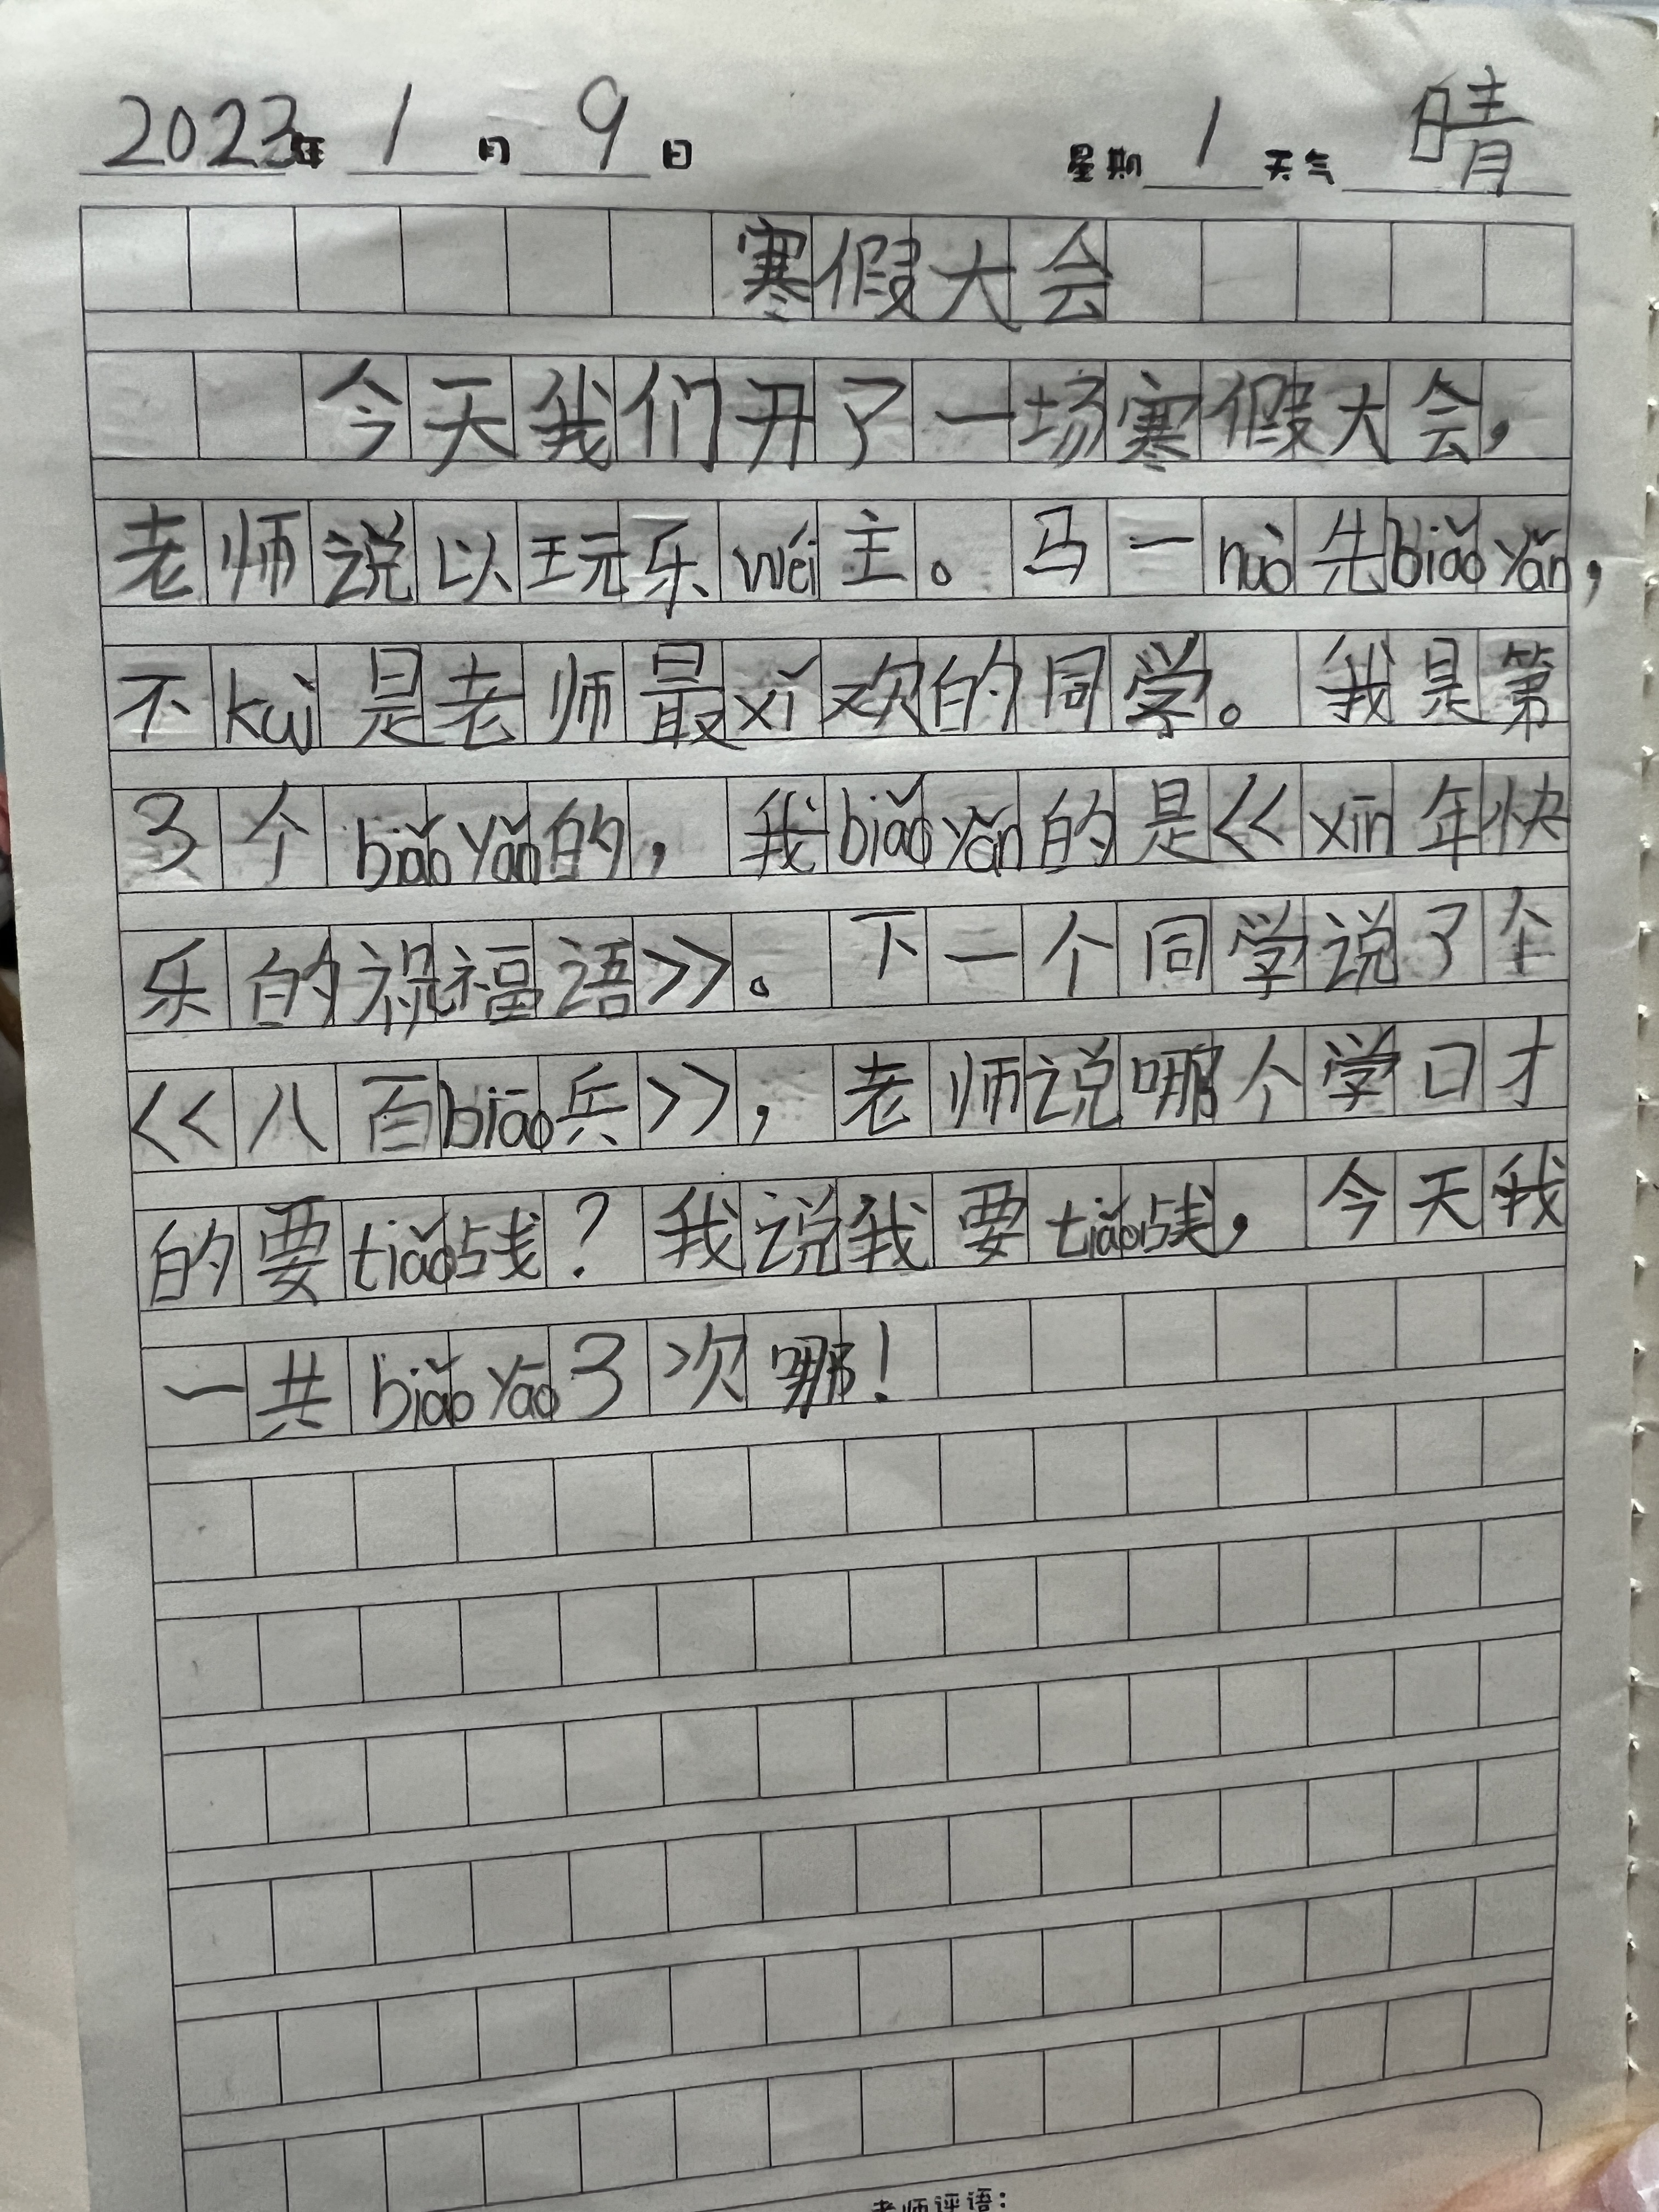 2023年 1 月 9 日 星期 1 天气 晴
寒假大会
今天我们开了一场寒假大会，
老师说以玩乐wéi主。马一nuò先biǎoyǎn，
不kuì是老师最xǐ欢的同学。我是第
3个biǎoyǎn的，我biǎoyǎn的是<<xīn年快
乐的祝福语>>。下一个同学说了个
<<八百biāo兵>>，老师说哪个学口才
的要tiǎo战？我说我要tiǎo战，今天我
一共biǎoyǎo3次哪！
老师评语：